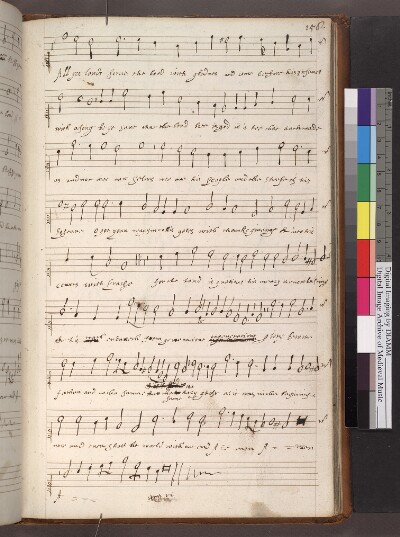 156
All ye lands serve the lord with gladnes and come before his presence
with a song be ye sure that the lord he is god it is he that hath made
us and not wee our selves wee are his people and the sheepe of his
pasture O goe your way into his gates with thanks giving & into his
courts with praise for the Lord is gratious his mercy is everlasting
& his
endureth from generation
Glory be to the
father and to the sonne & to the holy ghost as it was in the beginning &
now and ever shall be world without end A = men A = = men
A = = =
Digital Imaging by DIAMM
Digital Image Archive of Medieval Music